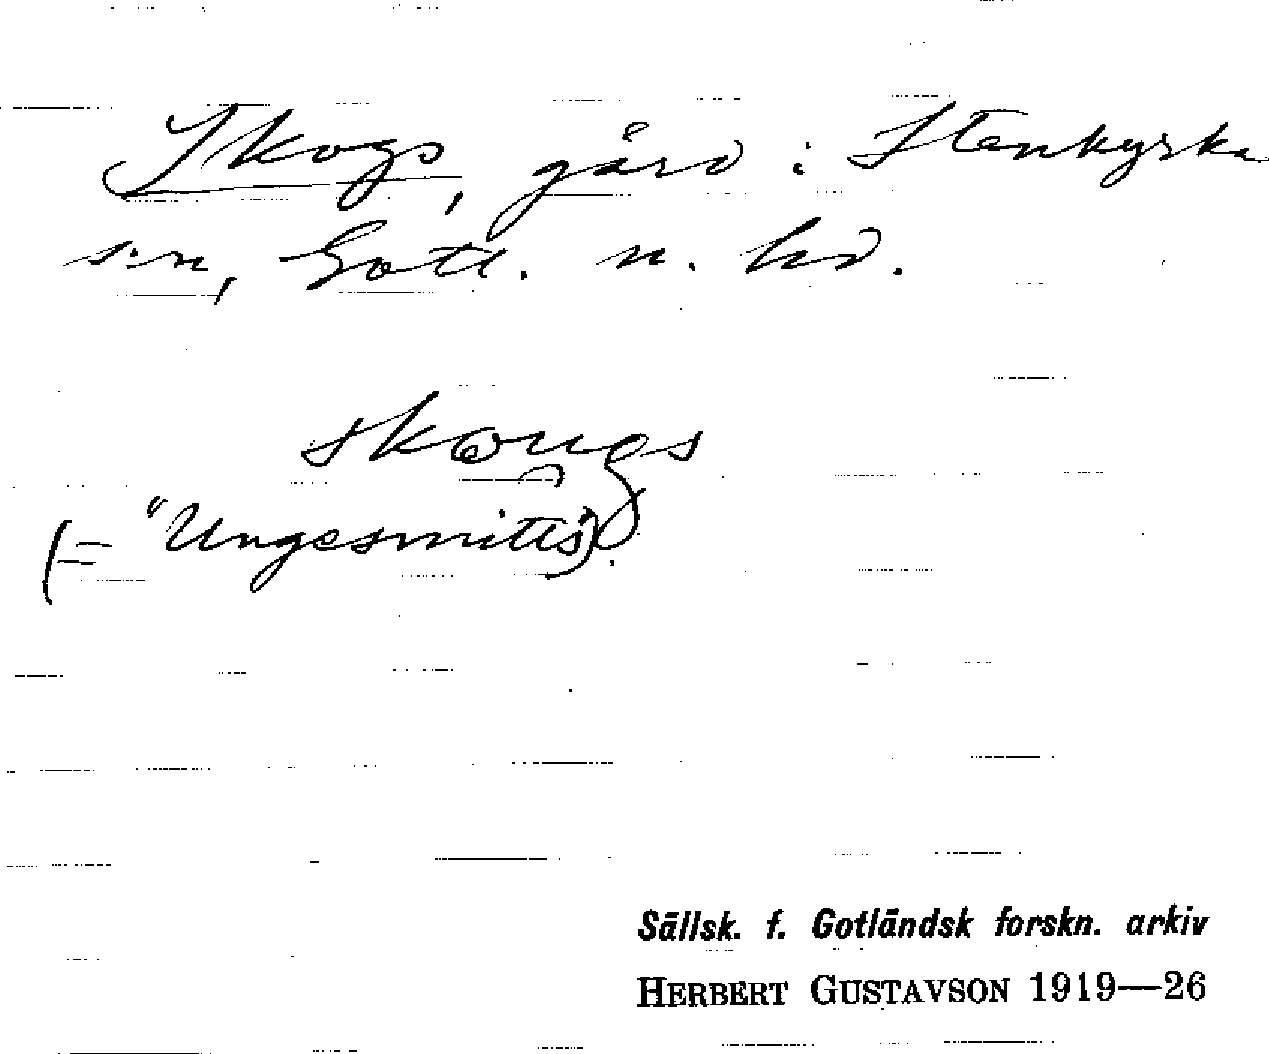 Skogs, gård i Stenkyrka
s:n, Gotl. n. hd.
skougs
(= "Ungesmitts").
Sällsk. f. Gotländsk forskn. arkiv
HERBERT GUSTAVSON 1919—26